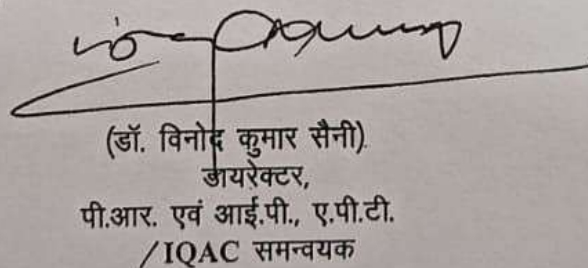 (डॉ. विनोद कुमार सैनी)
डायरेक्टर,
पी.आर. एवं आई.पी., ए.पी.टी.
/IQAC समन्वयक